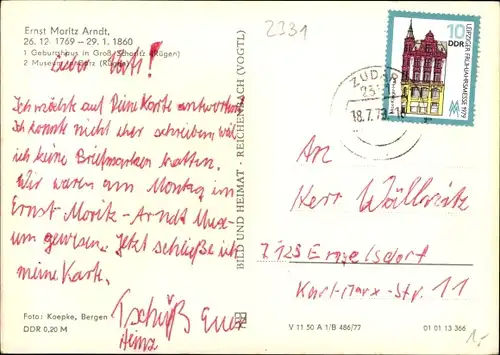 Ernst Moritz Arndt,
26. 12. 1769 – 29. 1. 1860
1 Geburtshaus in Groß Schoritz (Rügen)
2 Museum in Garz (Rügen)
Lieber Vati!
Ich möchte auf Deine Karte antworten.
Ich konnte nicht eher schreiben weil
ich keine Briefmarken hatten.
Wir waren am Montag im
Ernst-Moritz-Arndt Muse-
um gewesen. Jetzt schließe ich
meine Karte.
Tschüß Euer
Heinz
Foto: Koepke, Bergen
DDR 0,20 M
BILD UND HEIMAT · REICHENBACH (VOGTL)
2331
ZUDAR
18.7.79
10
DDR
LEIPZIGER FRÜHJAHRSMESSE 1979
An
Herr
7123 Engelsdorf
Karl-Marx-Str. 11
V 11 50 A 1/B 486/77
01 01 13 366
1,-